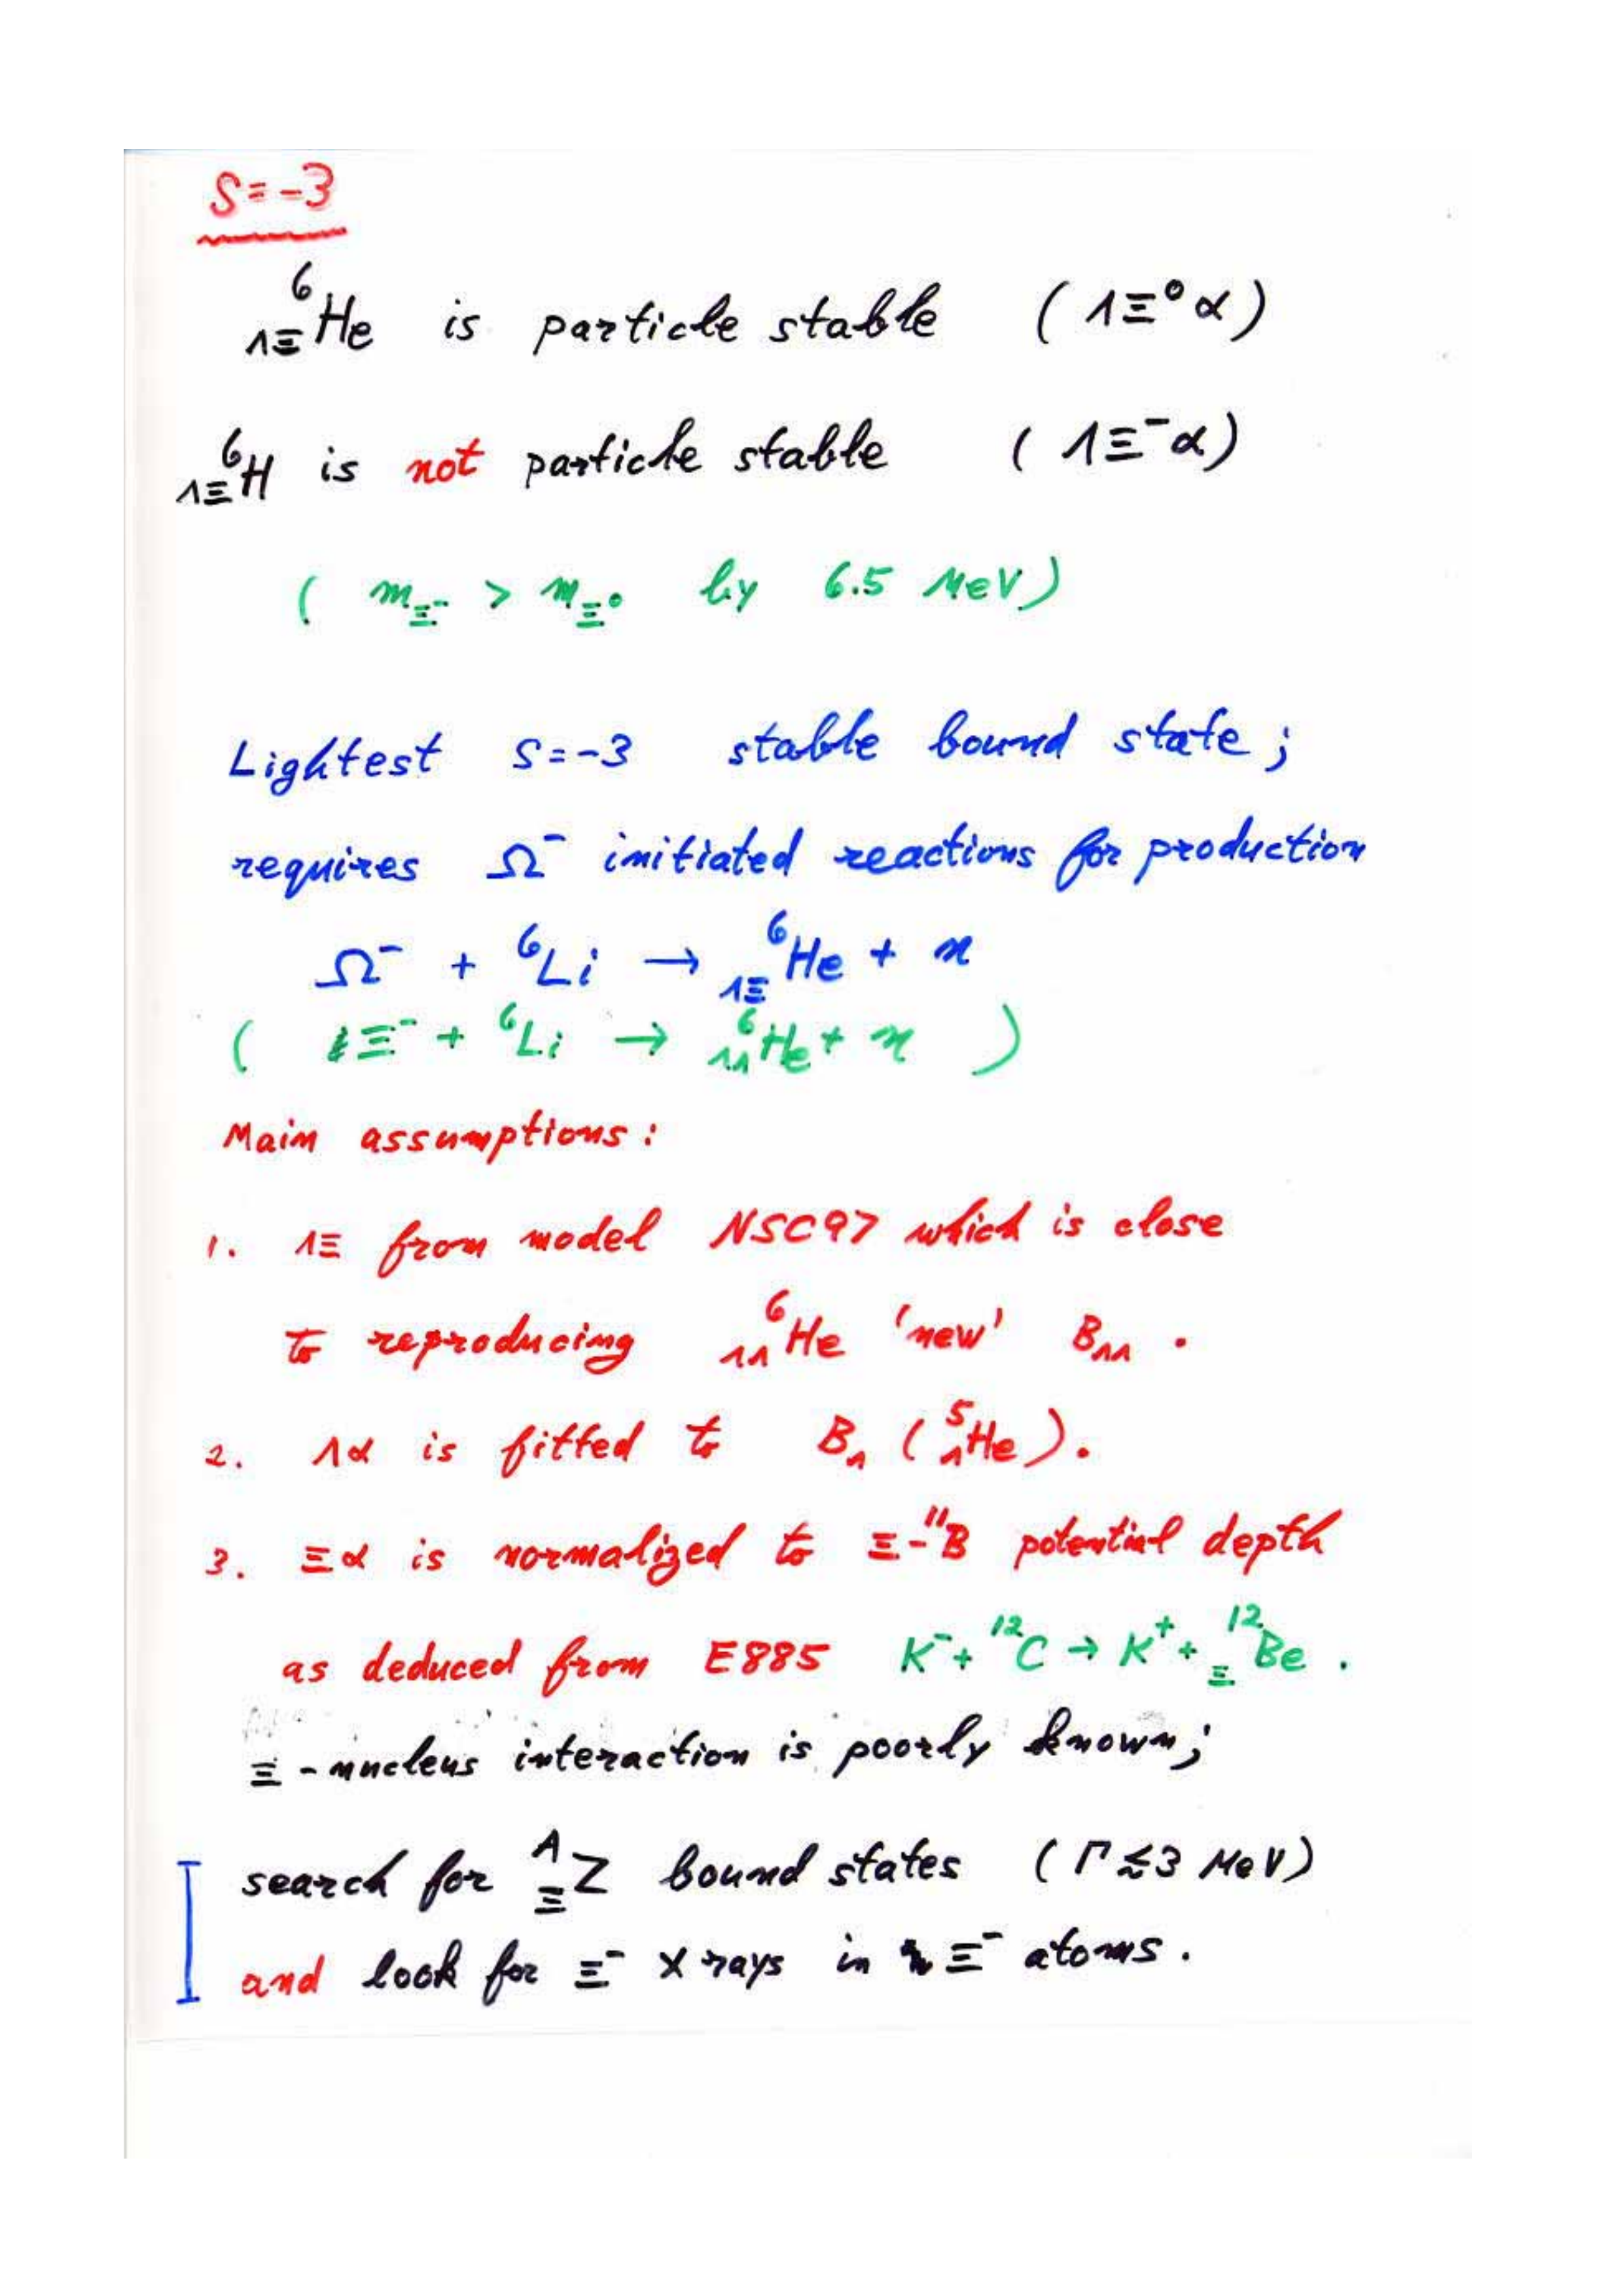 S=-3
⁶_ΛΞHe is particle stable (ΛΞ⁰α)
⁶_ΛΞH is not particle stable (ΛΞ⁻α)
(m_Ξ⁻ > m_Ξ⁰ by 6.5 MeV)
Lightest S=-3 stable bound state;
requires Ω⁻ initiated reactions for production
Ω⁻ + ⁶Li → ⁶_ΛΞHe + n
( Ξ⁻ + ⁶Li → ⁶_ΛΛHe + n )
Main assumptions:
1. ΛΞ from model NSC97 which is close
to reproducing ⁶_ΛΛHe 'new' B_ΛΛ .
2. Λα is fitted to B_Λ (⁵_ΛHe).
3. Ξα is normalized to Ξ-¹¹B potential depth
as deduced from E885 K⁻+ ¹²C → K⁺+ ¹²_ΞBe .
Ξ-nucleus interaction is poorly known;
search for ᴬ_ΞZ bound states (Γ≲3 MeV)
and look for Ξ⁻ X rays in Ξ⁻ atoms.